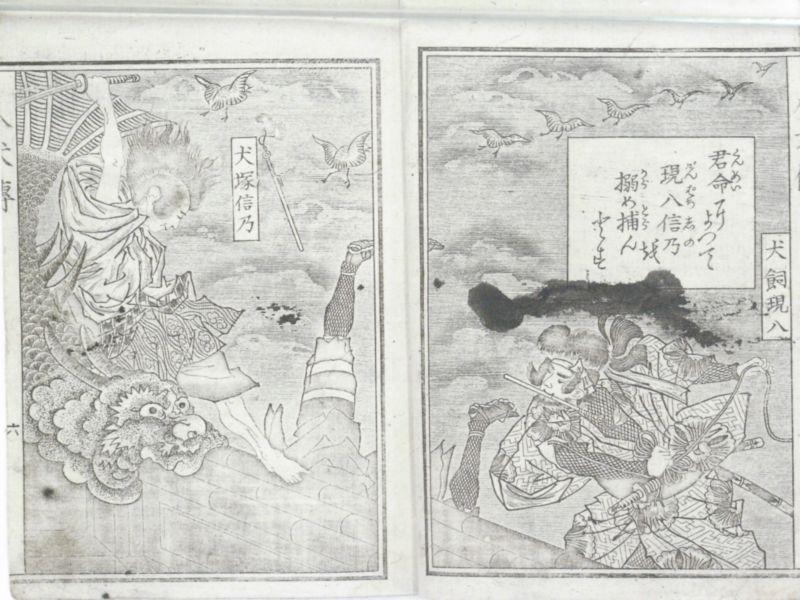 犬飼現八
君命によつて
現八信乃を
搦め捕んとす
くんめい
げんはちしの
からとら
犬塚信乃
八犬傳
六